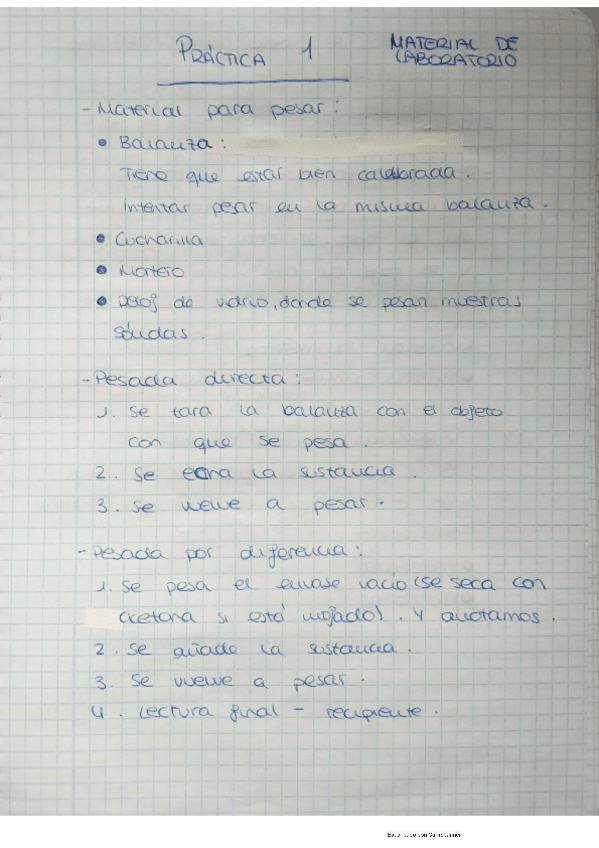 PRÁCTICA 1
MATERIAL DE
LABORATORIO
- Material para pesar:
• Balanza:
Tiene que estar bien calibrada.
intentar pesar en la misma balanza.
• Cucharilla
• Mortero
• Reloj de vidrio, donde se pesan muestras
sólidas.
- Pesada directa:
1. Se tara la balanza con el objeto
con que se pesa.
2. Se echa la sustancia.
3. Se vuelve a pesar.
- Pesada por diferencia:
1. Se pesa el envase vacío (se seca con
acetona si está mojado). Y anotamos.
2. Se añade la sustancia.
3. Se vuelve a pesar.
4. Lectura final - recipiente.